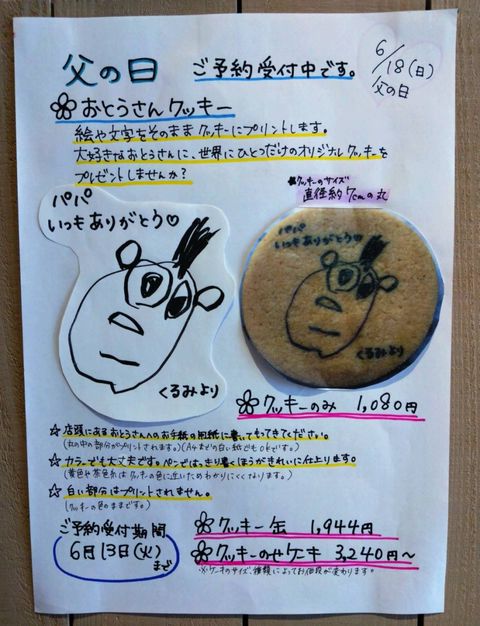 父の日 ご予約受付中です。
6/18(日)
父の日
おとうさんクッキー
絵や文字をそのままクッキーにプリントします。
大好きなおとうさんに、世界にひとつだけのオリジナルクッキーを
プレゼントしませんか?
★クッキーのサイズ
直径約7cmの丸
パパ
いつもありがとう♡
くるみより
パパ
いつもありがとう♡
くるみより
クッキーのみ 1,080円
☆店頭にあるおとうさんへのお手紙の用紙に書いてもってきてください。
(丸の中の部分がプリントされます。)(A4までの白い紙でもOKです。)
☆カラーでも大丈夫です。ペンではっきり書くほうがきれいに仕上ります。
(黄色や茶色系はクッキーの色に近いためわかりにくくなります。)
☆白い部分はプリントされません。
(クッキーの色のままです。)
ご予約受付期間
6月13日(火)
まで
クッキー缶 1,944円
クッキーのせケーキ 3,240円~
※ケーキのサイズ、種類によってお値段が変わります。